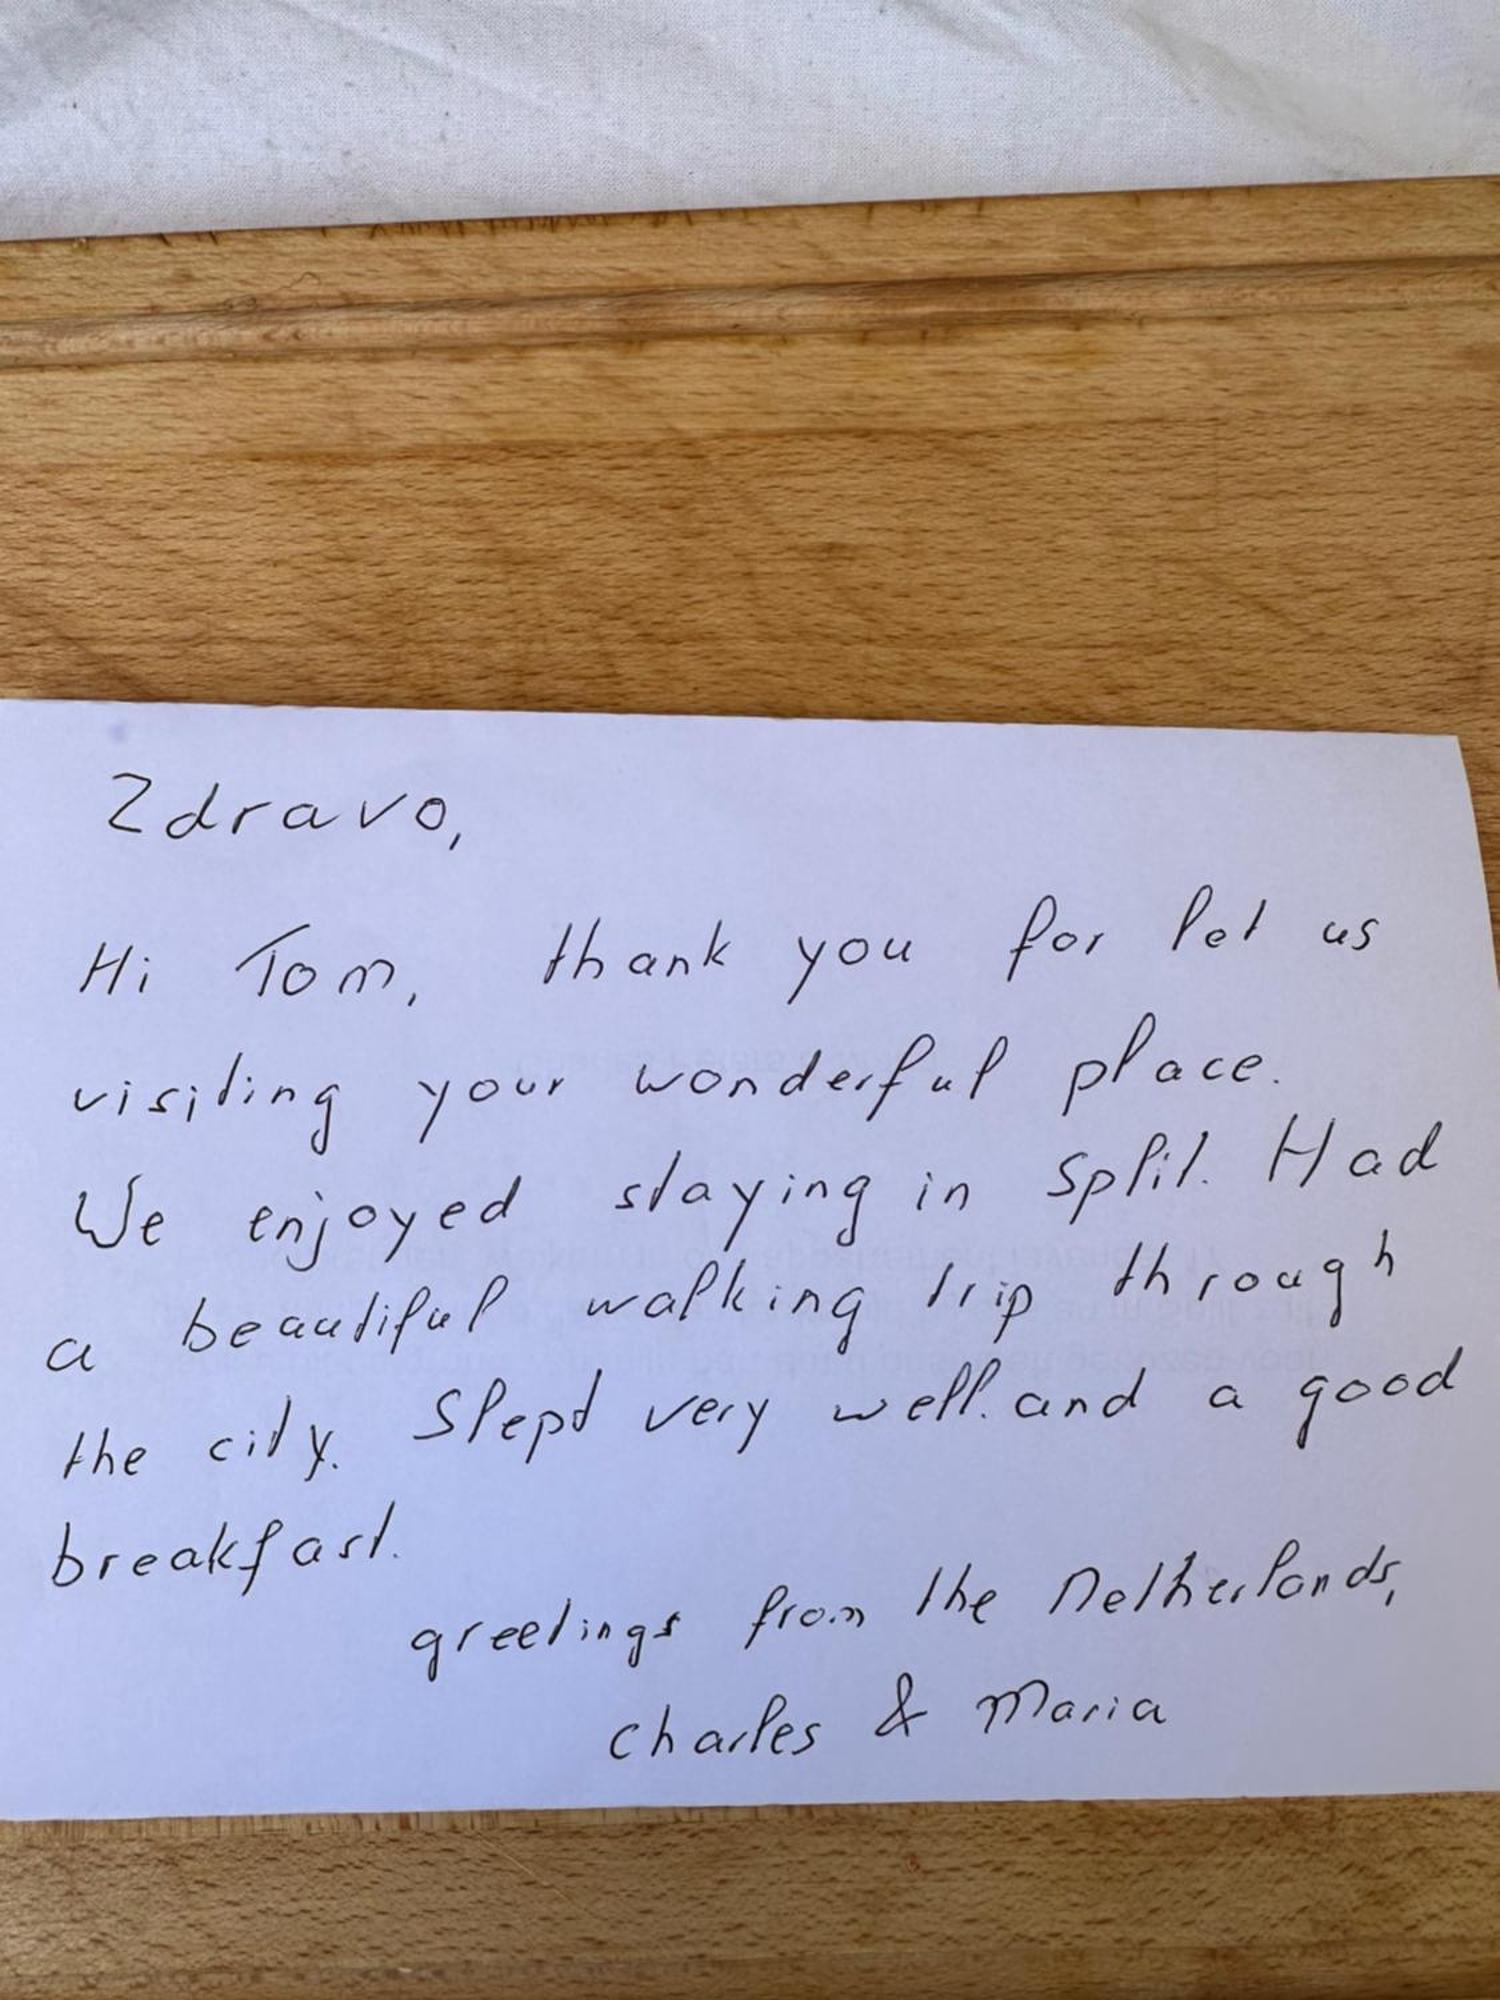 Zdravo,
Hi Tom, thank you for let us
visiting your wonderful place.
We enjoyed staying in Split. Had
a beautiful walking trip through
the city. Slept very well. and a good
breakfast.
greetings from the Netherlands,
Charles & Maria